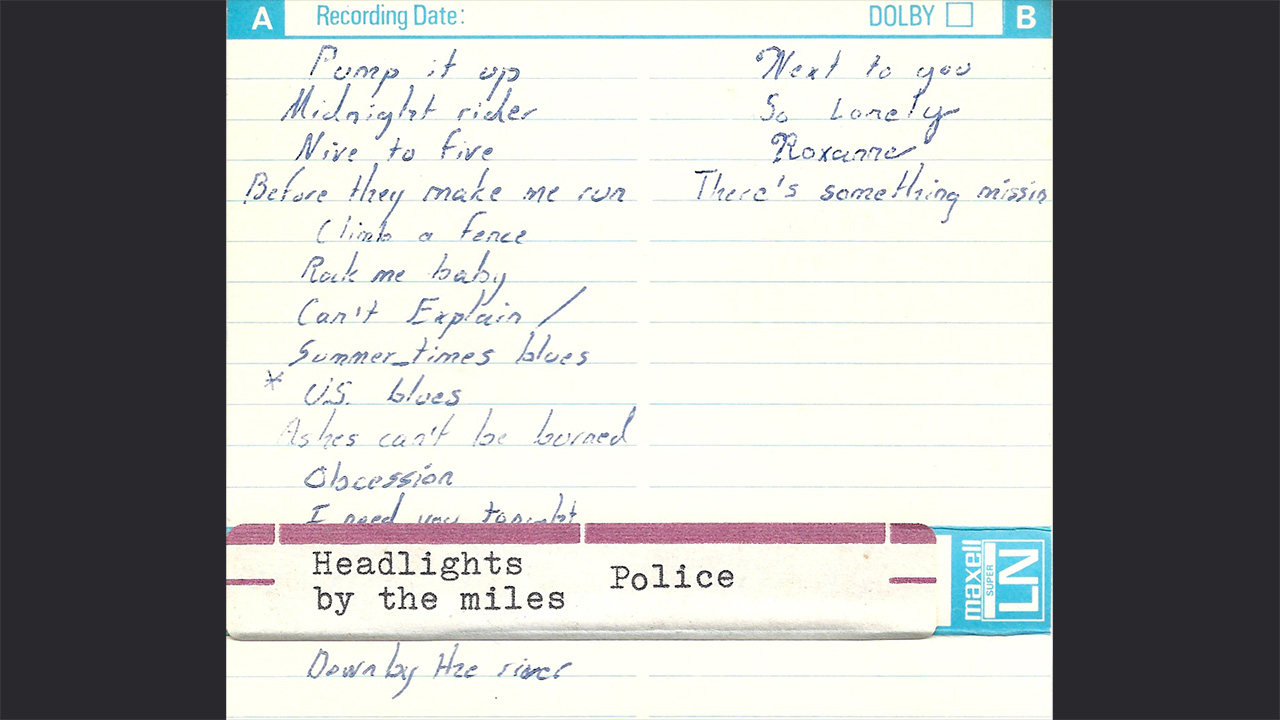 A Recording Date: DOLBY B
Pump it up
Midnight rider
Nive to five
Before they make me run
Climb a fence
Rock me baby
Can't Explain /
Summer_times blues
* U.S. blues
Ashes can't be burned
Obcession
I need you tonight
Next to you
So Lonely
Roxanne
There's something missin
Headlights
by the miles
Police
maxell
SUPER
LN
Down by the river